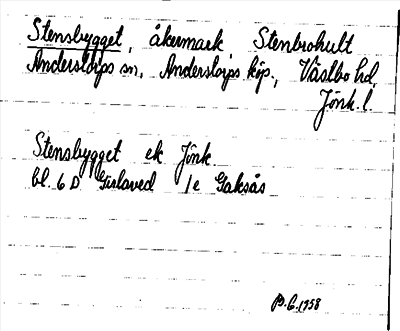 Stensbygget, åkermark, Stenbrohult
Anderstorps sn, Anderstorps köp., Västbo hd,
Jönk. l.
Stensbygget ek Jönk.
bl. 6 D Gislaved 1e Gaksås
P.G. 1958